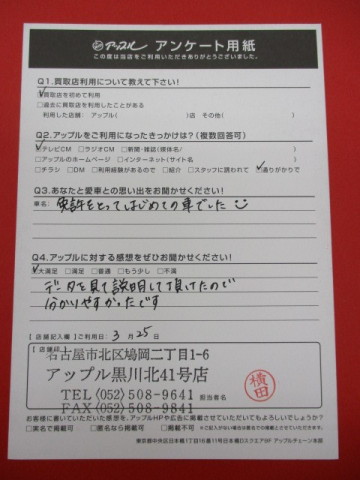 アップル アンケート用紙
この度は当店をご利用いただきありがとうございました。
Q1.買取店利用について教えて下さい!
□買取店を初めて利用
□過去に買取店を利用したことがある
利用した店舗: アップル( )店 その他( )
Q2.アップルをご利用になったきっかけは?(複数回答可)
□テレビCM □ラジオCM □新聞・雑誌(媒体名/ )
□アップルのホームページ □インターネット(サイト名 )
□チラシ □DM □利用経験があるので □紹介 □スタッフに誘われて □通りがかりで
Q3.あなたと愛車との思い出をお聞かせください!
車名:
免許をとってはじめての車でした
Q4.アップルに対する感想をぜひお聞かせください!
□大満足 □満足 □普通 □もう少し □不満
データを見て説明して頂けたので
分かりやすかったです
【店舗記入欄】ご利用日: 3月25日
【店舗印】
名古屋市北区鳩岡二丁目1-6
アップル黒川北41号店
TEL(052)508-9641
担当者名
横田
FAX(052)508-9841
お客様に書いていただいた感想を、アップルHPや広告に掲載させていただいてもよろしいでしょうか?
□実名で掲載可 □匿名なら掲載可 □掲載不可
東京都中央区日本橋1丁目16番11号日本橋Dスクエア8F アップルチェーン本部